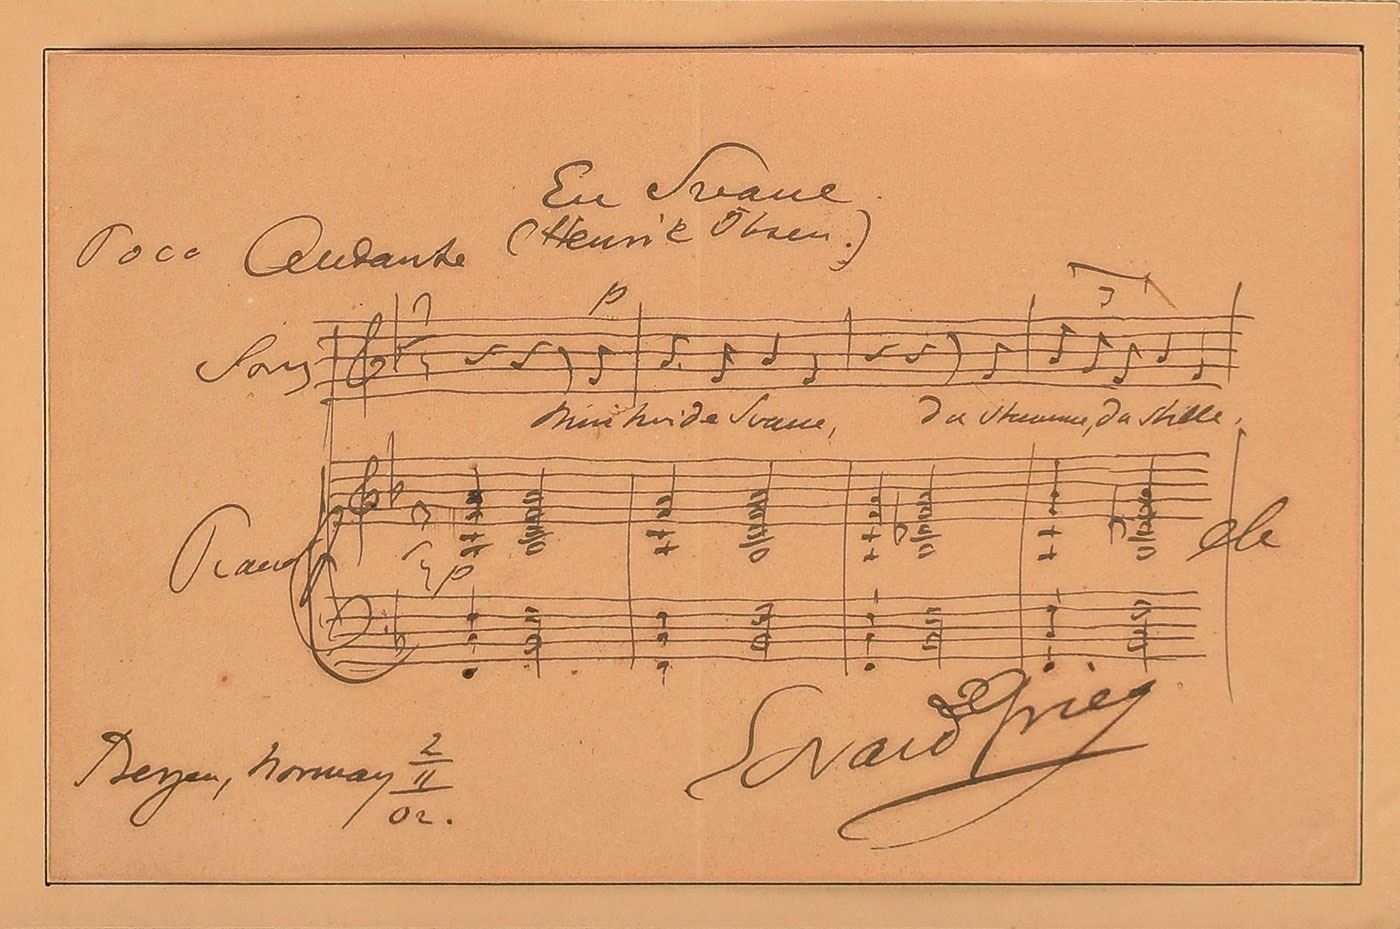 En Svane.
(Henrik Ibsen.)
Poco Andante
p
3
Song
Min hvide Svane, du stumme, du stille,
Piano
p
etc
Edvard Grieg
Bergen, Norway 2/11 02.